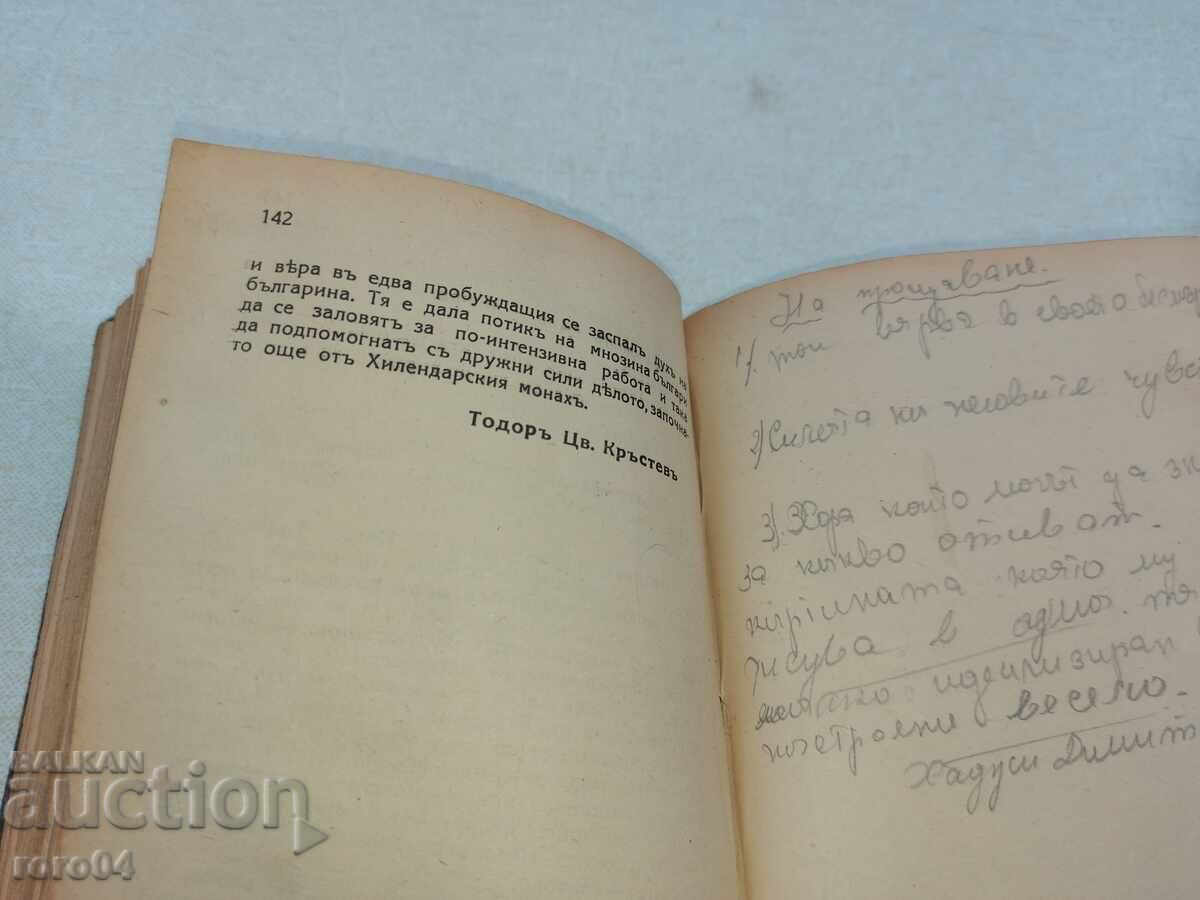 142
и вѣра въ едва пробуждащия се заспалъ духъ на
българина. Тя е дала потикъ на мнозина българи
да се заловятъ за по-интензивна работа и така
да подпомогнатъ съ дружни сили дѣлото, започна-
то още отъ Хилендарския монахъ.
Тодоръ Цв. Кръстевъ
На прощаване.
1). той вярва в своето
2) Силата на неговите
3). Хора които могат да
за какво отиват.
картината която му
в
идеализиран
настроени весело.
Хаджи Димит
BALKAN
auction
roro04